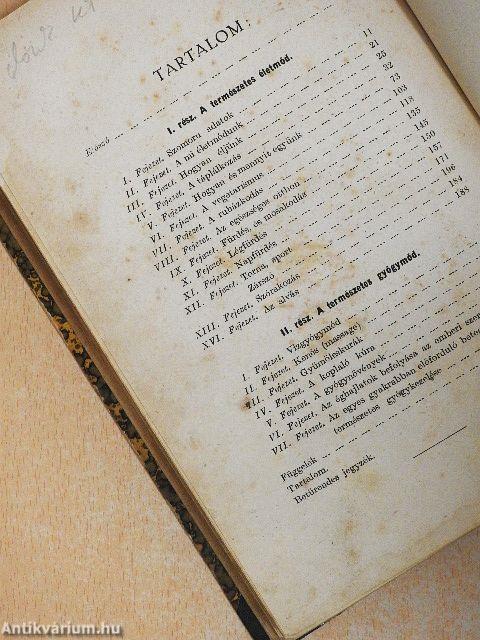 TARTALOM:
Előszó
I. rész. A természetes életmód.
I. Fejezet. Szomoru adatok 11
II. Fejezet. A mi életmódunk 21
III. Fejezet. Hogyan éljünk 25
IV. Fejezet. A táplálkozás 32
V. Fejezet. Hogyan és mennyit együnk 73
VI. Fejezet. A vegetarismus 103
VII. Fejezet. A ruházkodás 118
VIII. Fejezet. Az egészséges otthon 135
IX. Fejezet. Fürdés, és mosakodás 145
X. Fejezet. Légfürdés 150
XI. Fejezet. Napfürdés 157
XII. Fejezet. Torna, sport 171
Zárszó 196
XIII. Fejezet. Szórakozás 184
XVI. Fejezet. Az alvás 188
II. rész. A természetes gyógymód.
I. Fejezet. Vizgyógymód
II. Fejezet. Kenés (massage)
III. Fejezet. Gyümölcskurák
IV. Fejezet. A koplaló kúra
V. Fejezet. A gyógynövények
VI. Fejezet. Az éghajlatok befolyása az emberi szer
VII. Fejezet. Az egyes gyakrabban előforduló beteg
természetes gyógykezelése
Függelék
Tartalom.
Betürendes jegyzék.
Antikvárium.hu